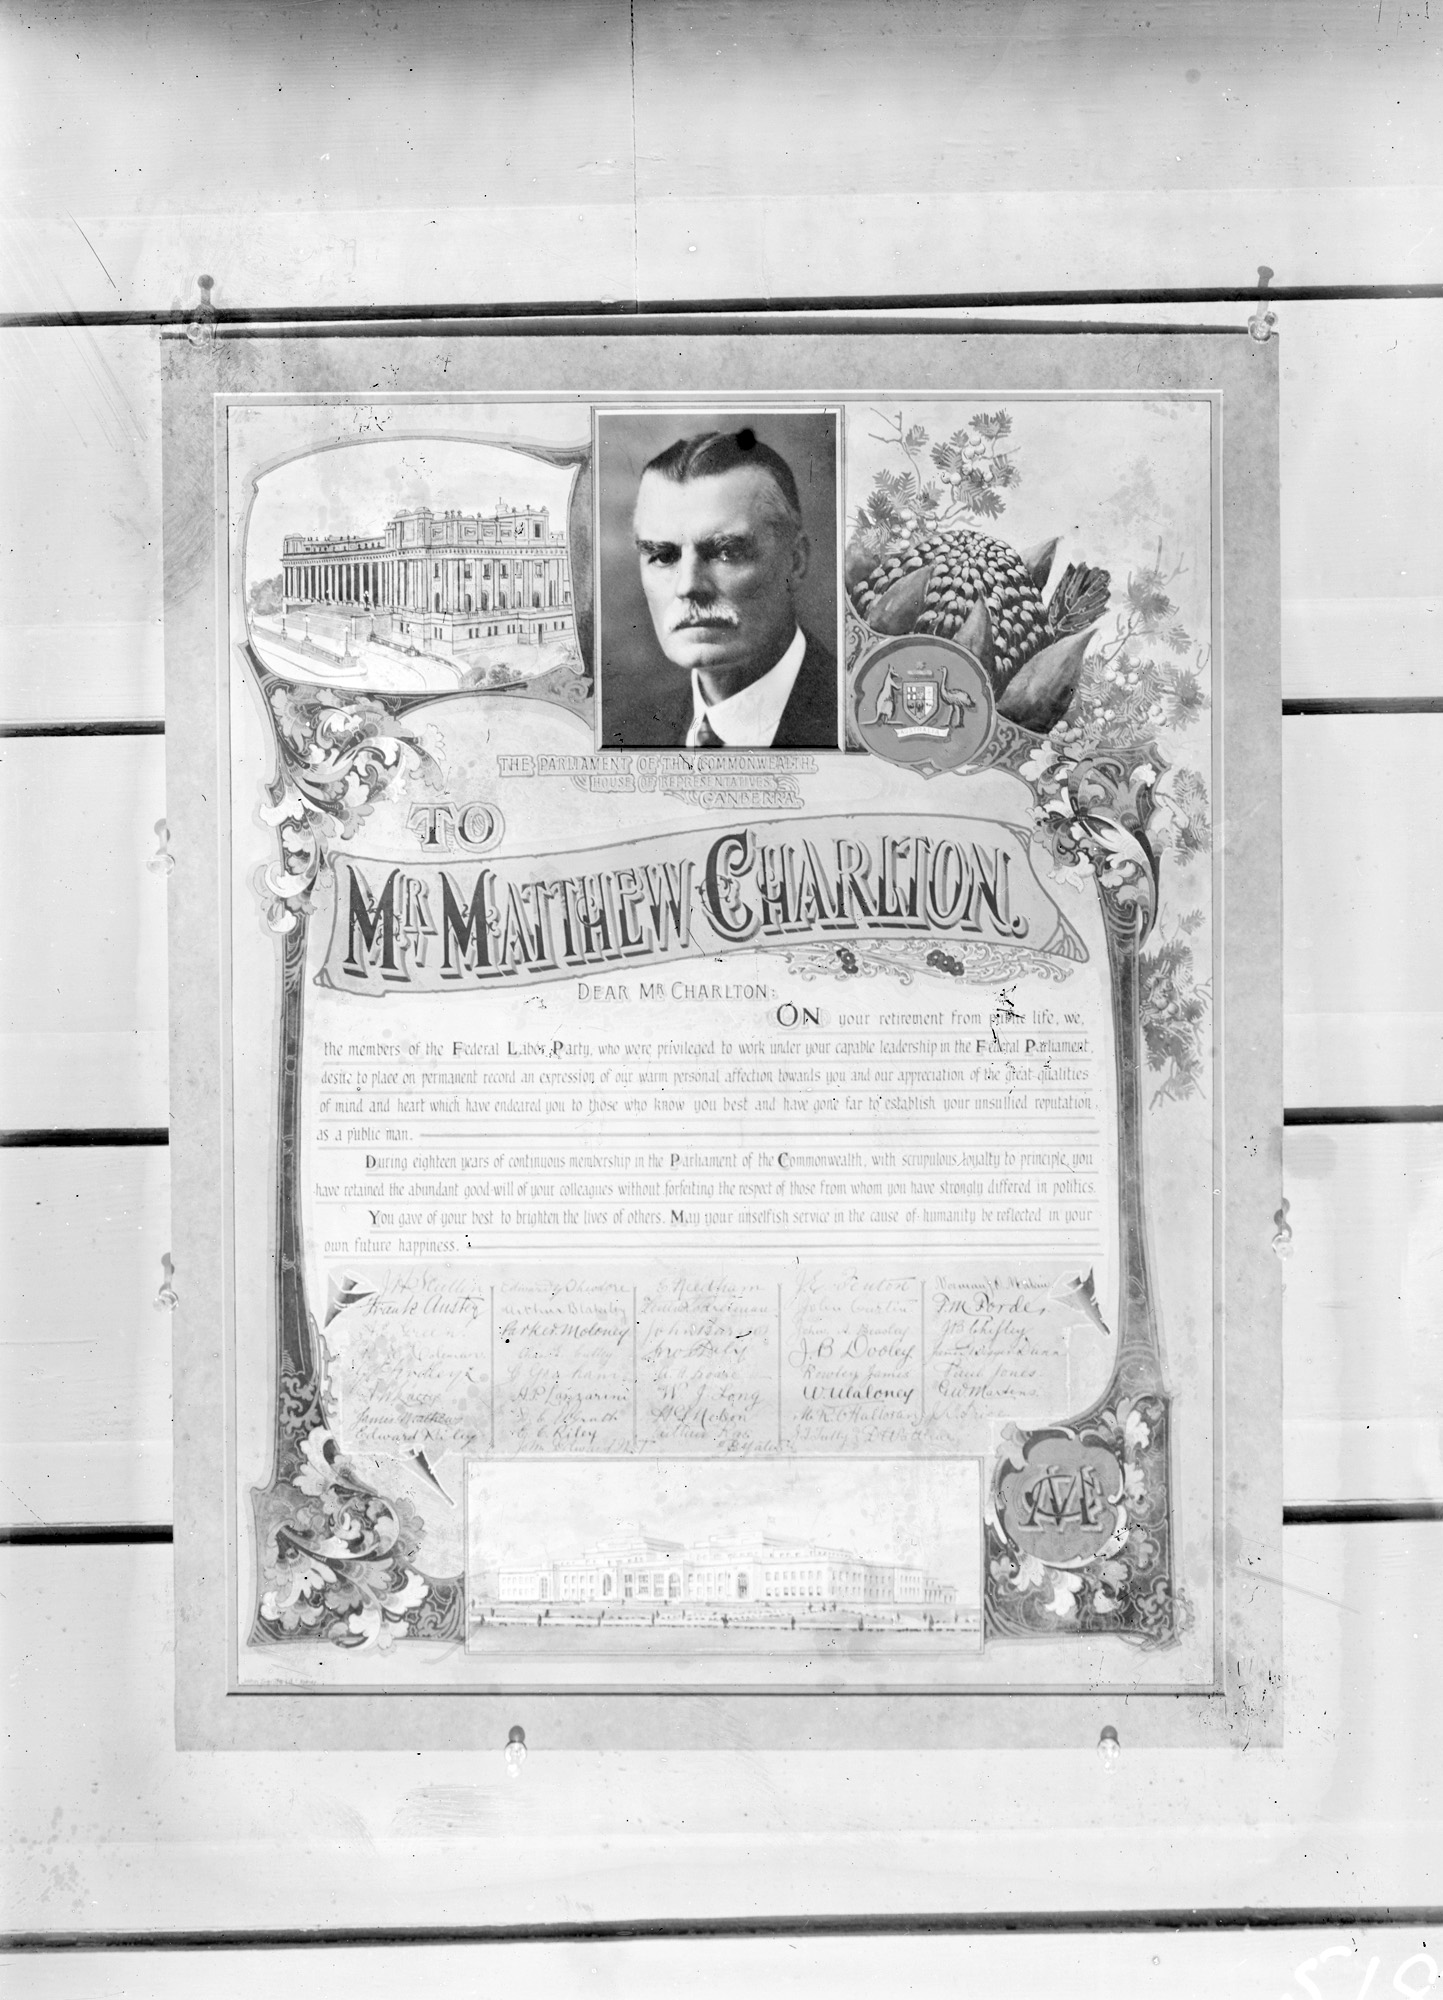 THE PARLIAMENT OF THE COMMONWEALTH
HOUSE OF REPRESENTATIVES
CANBERRA
AUSTRALIA
TO
MR. MATTHEW CHARLTON.
DEAR MR CHARLTON:
ON your retirement from public life, we,
the members of the Federal Labor Party, who were privileged to work under your capable leadership in the Federal Parliament,
desire to place on permanent record an expression of our warm personal affection towards you and our appreciation of the great qualities
of mind and heart which have endeared you to those who know you best and have gone far to establish your unsullied reputation,
as a public man.
During eighteen years of continuous membership in the Parliament of the Commonwealth, with scrupulous loyalty to principle, you
have retained the abundant good-will of your colleagues without forfeiting the respect of those from whom you have strongly differed in politics.
You gave of your best to brighten the lives of others. May your unselfish service in the cause of humanity be reflected in your
own future happiness.
J H Scullin
Frank Anstey
Edward Riley
Edward G Theodore
Arthur Blakeley
Parker Moloney
H P Lazzarini
E. C. Riley
E Needham
W J Long
J E Fenton
John Curtin
J.B Dooley
Rowley James
W Maloney
Norman J O Makin
F M Forde
J B Chifley
Paul Jones
MC